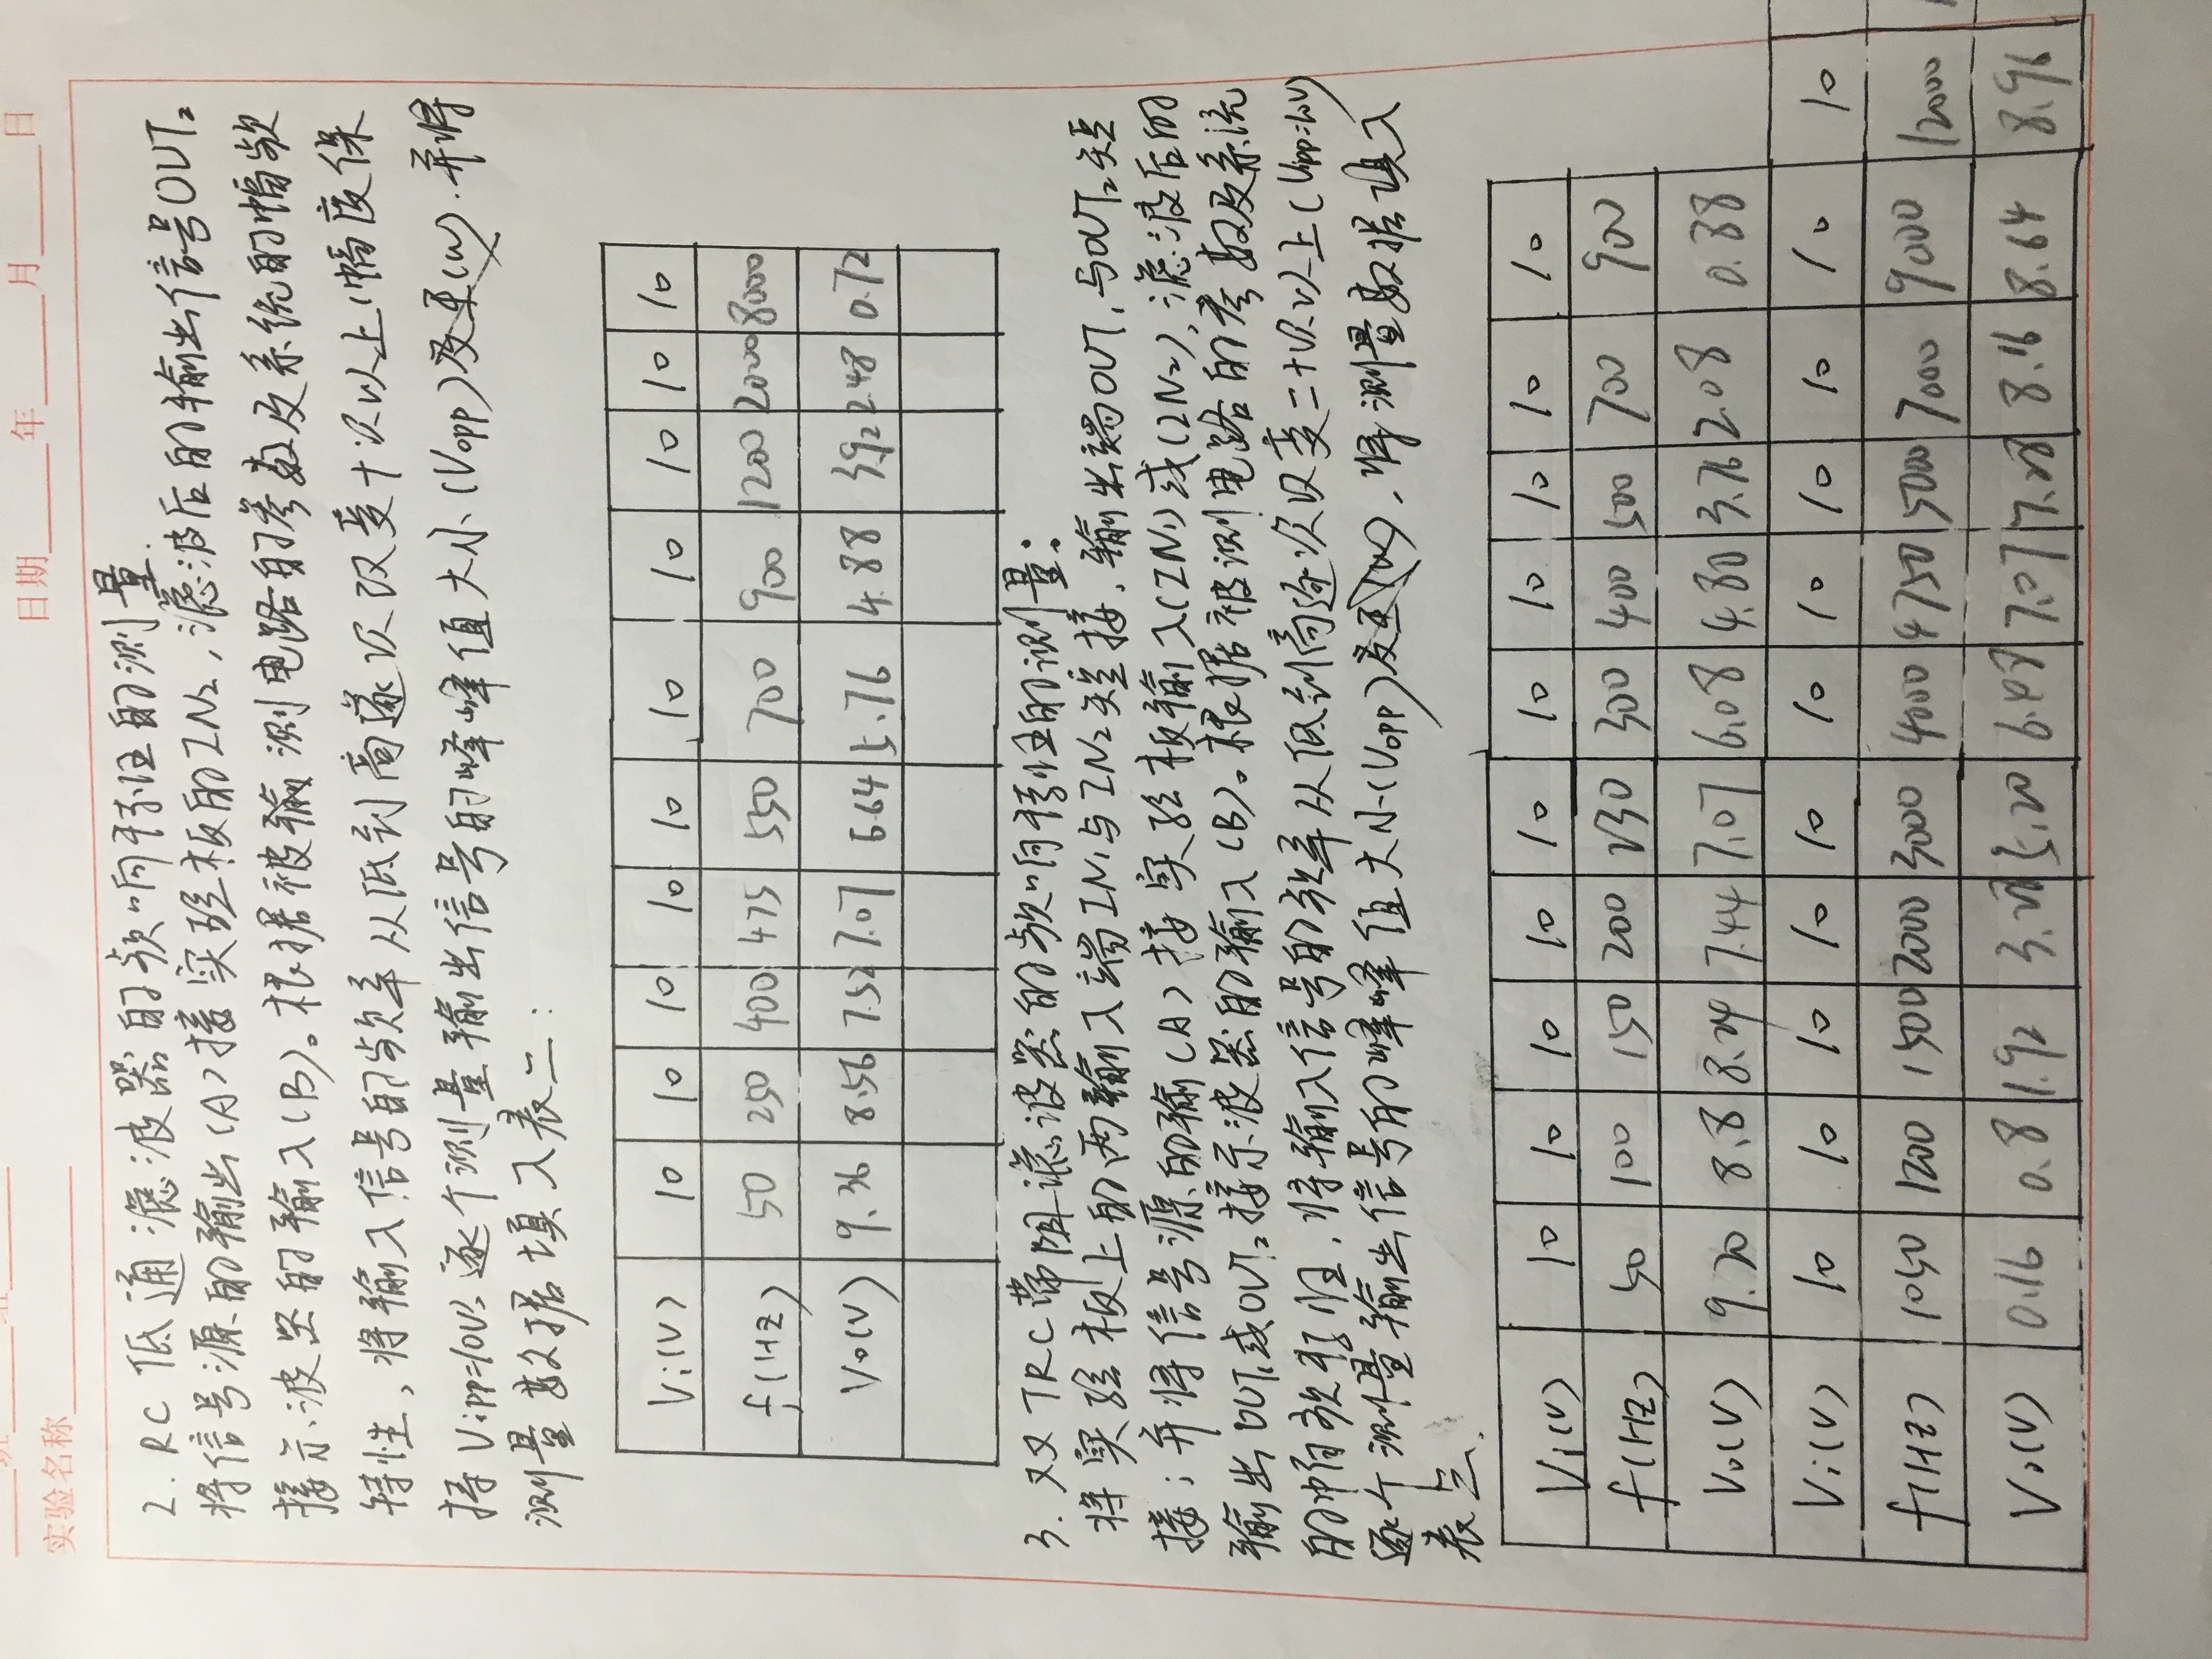 班 组
日期 年 月 日
实验名称
2. RC 低通滤波器的频响特性的测量.
将信号源的输出(A)接实验板的IN₂,滤波后的输出信号OUT₂
接示波器的输入(B)。根据被输测电路的参数及系统的幅频
特性,将输入信号的频率从低到高逐次改变十次以上(幅度保
持Vipp=10V),逐个测量输出信号的峰峰值大小(Vopp) 并将
测量数据填入表二:
Vi(V) 10 10 10 10 10 10 10 10 10 10
f(Hz) 50 250 400 475 550 700 900 1200 2000 8000
Vo(V) 9.36 8.56 7.52 7.07 6.64 5.76 4.88 3.92 2.48 0.72
3. 双TRC带阻滤波器的频响特性的测量:
将实验板上的两输入端IN₁与IN₂短接,输出端OUT₁与OUT₂短
接;并将信号源的输(A)接实验板输入(IN₁)或(IN₂),滤波后的
输出OUT₁或OUT₂接示波器的输入(B)。根据被测电路的参数及系统
的幅频特性,将输入信号的频率从低到高逐次改变二十次以上(Vipp=10V)
逐个测量输出信号的峰峰值大小(Vopp) ,将测量数据填入
表三.
Vi(V) 10 10 10 10 10 10 10 10 10 10
f(Hz) 50 100 150 200 230 300 400 500 700 900
Vo(V) 9.20 8.8 8.24 7.44 7.07 6.08 4.80 3.76 2.08 0.88
Vi(V) 10 10 10 10 10 10 10 10 10 10 10
f(Hz) 1050 1200 1500 2000 3000 4000 4750 5000 7000 9000 12000
Vo(V) 0.16 0.8 1.92 3.28 5.20 6.48 7.07 7.28 8.16 8.64 8.96